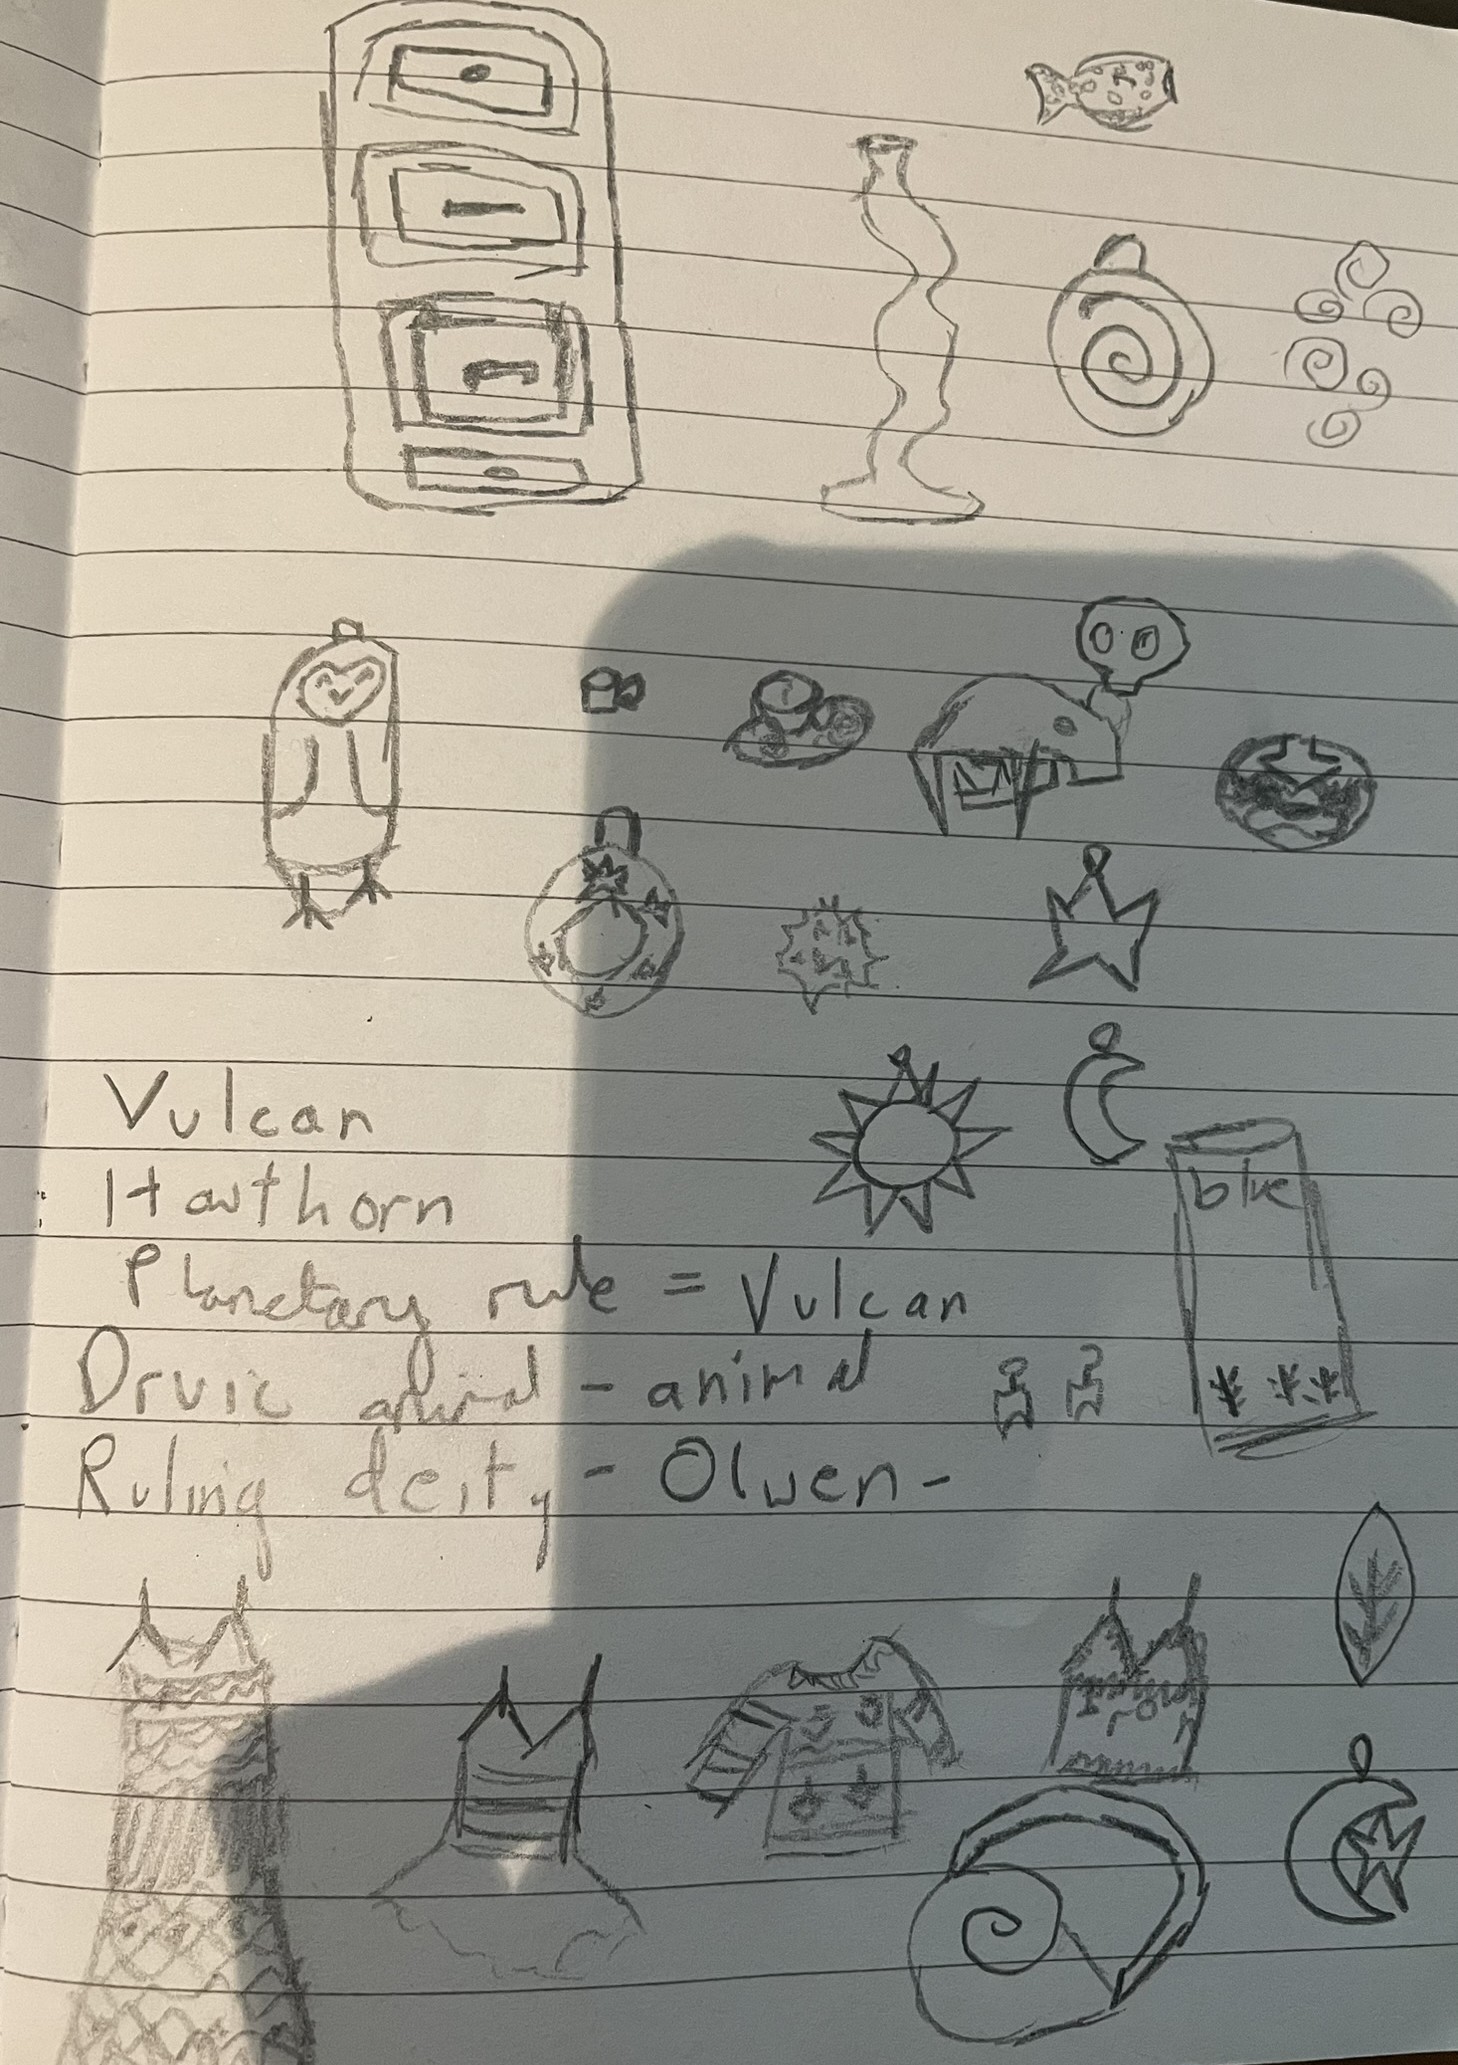 Vulcan
Hawthorn
Planetary rule = Vulcan
blue
Druic animal - animal
Ruling deity - Olwen -